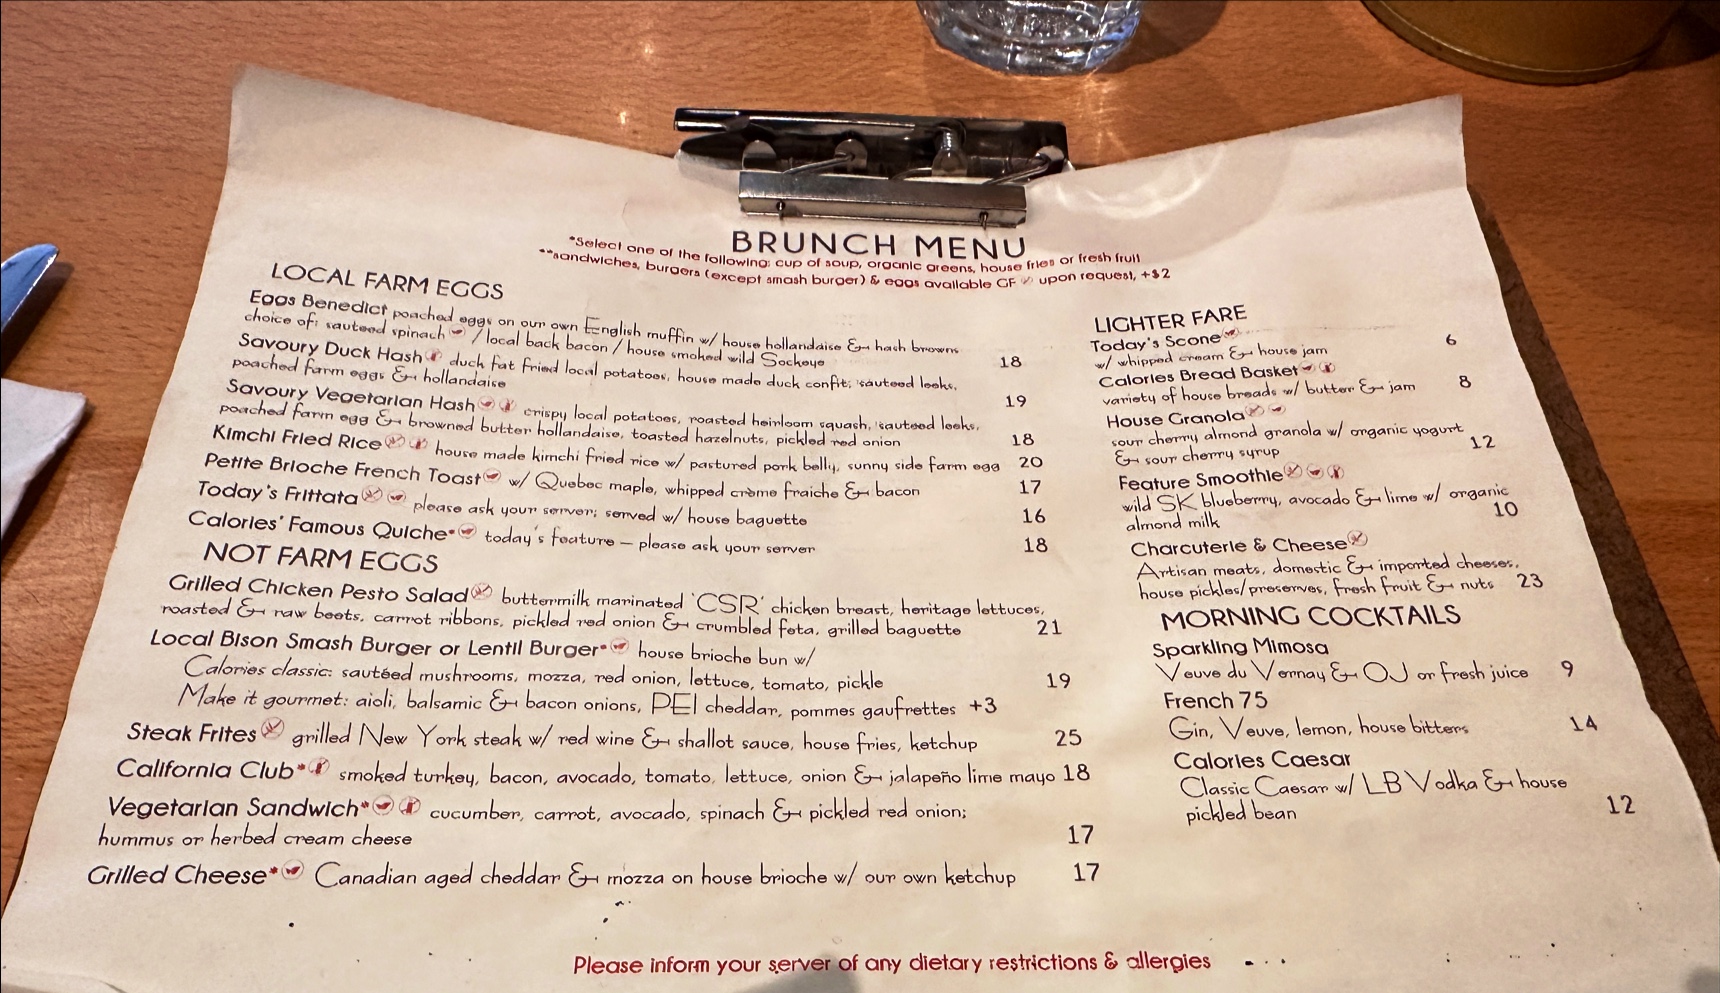 BRUNCH MENU
*Select one of the following: cup of soup, organic greens, house fries or fresh fruit
**sandwiches, burgers (except smash burger) & eggs available GF upon request, +$2
LOCAL FARM EGGS
Eggs Benedict poached eggs on our own English muffin w/ house hollandaise & hash browns
choice of: sauteed spinach / local back bacon / house smoked wild Sockeye 18
Savoury Duck Hash duck fat fried local potatoes, house made duck confit, sauteed leeks,
poached farm eggs & hollandaise 19
Savoury Vegetarian Hash crispy local potatoes, roasted heirloom squash, sauteed leeks,
poached farm egg & browned butter hollandaise, toasted hazelnuts, pickled red onion 18
Kimchi Fried Rice house made kimchi fried rice w/ pastured pork belly, sunny side farm egg 20
Petite Brioche French Toast w/ Quebec maple, whipped crème fraiche & bacon 17
Today's Frittata please ask your server; served w/ house baguette 16
Calories' Famous Quiche* today's feature – please ask your server 18
NOT FARM EGGS
Grilled Chicken Pesto Salad buttermilk marinated 'CSR' chicken breast, heritage lettuces,
roasted & raw beets, carrot ribbons, pickled red onion & crumbled feta, grilled baguette 21
Local Bison Smash Burger or Lentil Burger* house brioche bun w/
Calories classic: sautéed mushrooms, mozza, red onion, lettuce, tomato, pickle 19
Make it gourmet: aioli, balsamic & bacon onions, PEI cheddar, pommes gaufrettes +3
Steak Frites grilled New York steak w/ red wine & shallot sauce, house fries, ketchup 25
California Club* smoked turkey, bacon, avocado, tomato, lettuce, onion & jalapeño lime mayo 18
Vegetarian Sandwich* cucumber, carrot, avocado, spinach & pickled red onion;
hummus or herbed cream cheese 17
Grilled Cheese* Canadian aged cheddar & mozza on house brioche w/ our own ketchup 17
LIGHTER FARE
Today's Scone 6
w/ whipped cream & house jam
Calories Bread Basket
variety of house breads w/ butter & jam 8
House Granola
sour cherry almond granola w/ organic yogurt
& sour cherry syrup 12
Feature Smoothie
wild SK blueberry, avocado & lime w/ organic
almond milk 10
Charcuterie & Cheese
Artisan meats, domestic & imported cheeses,
house pickles/preserves, fresh fruit & nuts 23
MORNING COCKTAILS
Sparkling Mimosa
Veuve du Vernay & OJ or fresh juice 9
French 75
Gin, Veuve, lemon, house bitters 14
Calories Caesar
Classic Caesar w/ LB Vodka & house
pickled bean 12
Please inform your server of any dietary restrictions & allergies